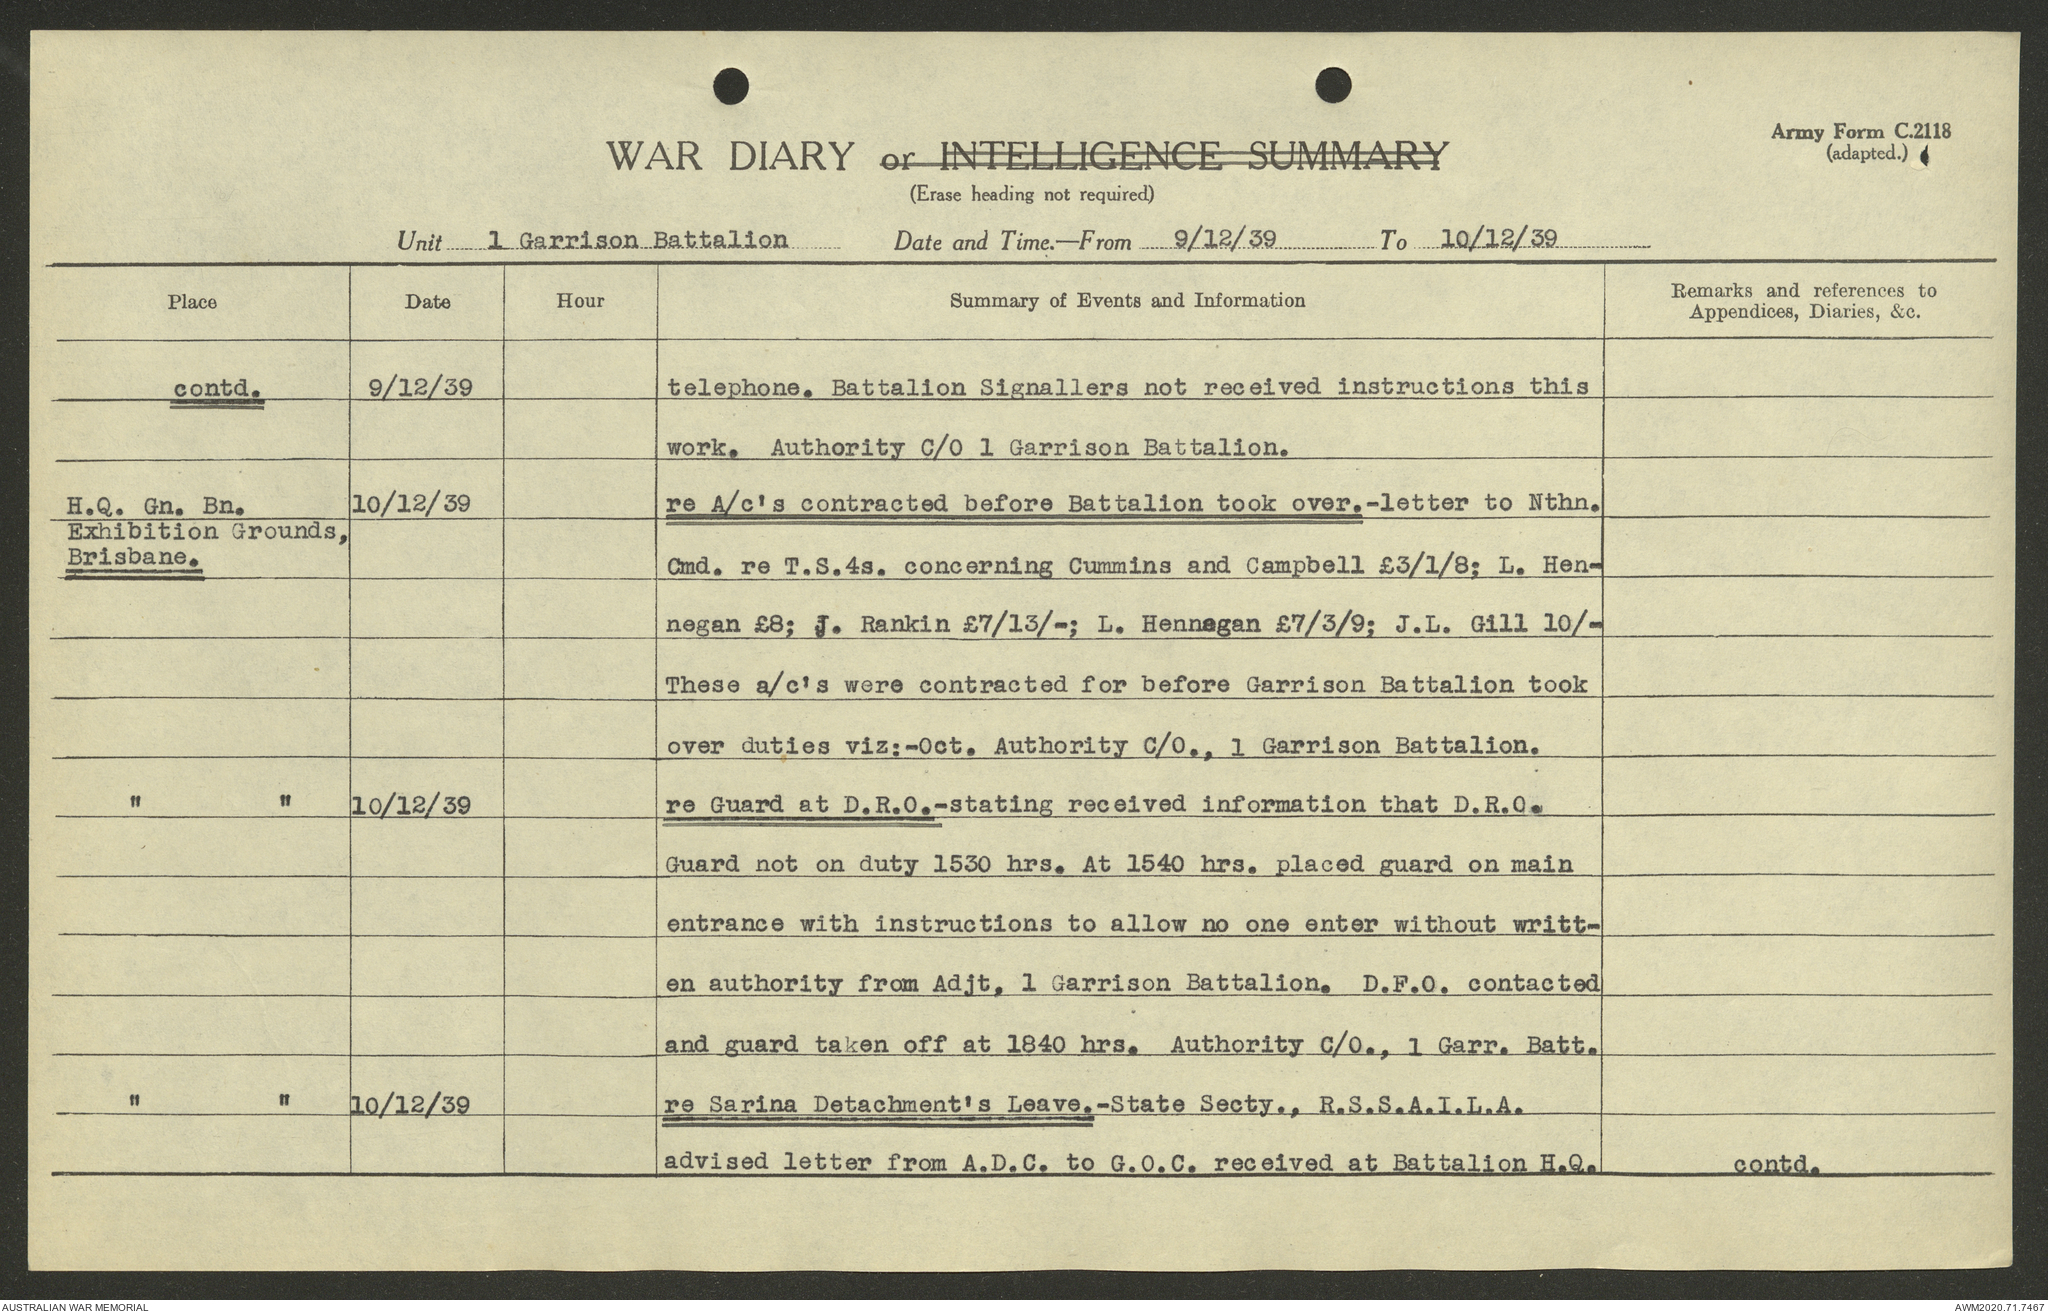 Army Form C.2118
(adapted.)
WAR DIARY or INTELLIGENCE SUMMARY
(Erase heading not required)
Unit 1 Garrison Battalion Date and Time.—From 9/12/39 To 10/12/39
Place Date Hour Summary of Events and Information Remarks and references to
Appendices, Diaries, &c.
contd. 9/12/39 telephone. Battalion Signallers not received instructions this
work. Authority C/O 1 Garrison Battalion.
H.Q. Gn. Bn. 10/12/39 re A/c's contracted before Battalion took over.-letter to Nthn.
Exhibition Grounds,
Brisbane. Cmd. re T.S.4s. concerning Cummins and Campbell £3/1/8; L. Hen-
negan £8; J. Rankin £7/13/-; L. Hennegan £7/3/9; J.L. Gill 10/-
These a/c's were contracted for before Garrison Battalion took
over duties viz:-Oct. Authority C/O., 1 Garrison Battalion.
" " 10/12/39 re Guard at D.R.O.-stating received information that D.R.O.
Guard not on duty 1530 hrs. At 1540 hrs. placed guard on main
entrance with instructions to allow no one enter without writt-
en authority from Adjt, 1 Garrison Battalion. D.F.O. contacted
and guard taken off at 1840 hrs. Authority C/O., 1 Garr. Batt.
" " 10/12/39 re Sarina Detachment's Leave.-State Secty., R.S.S.A.I.L.A.
advised letter from A.D.C. to G.O.C. received at Battalion H.Q. contd.
AUSTRALIAN WAR MEMORIAL AWM2020.71.7467